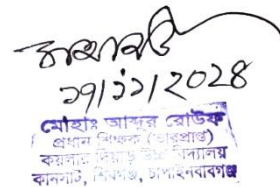 ১৭/১১/২০২৪
মোহাঃ আব্দুর রৌউফ
প্রধান শিক্ষক (ভারপ্রাপ্ত)
কয়লার দিয়াড় উচ্চ বিদ্যালয়
কানসাট, শিবগঞ্জ, চাঁপাইনবাবগঞ্জ